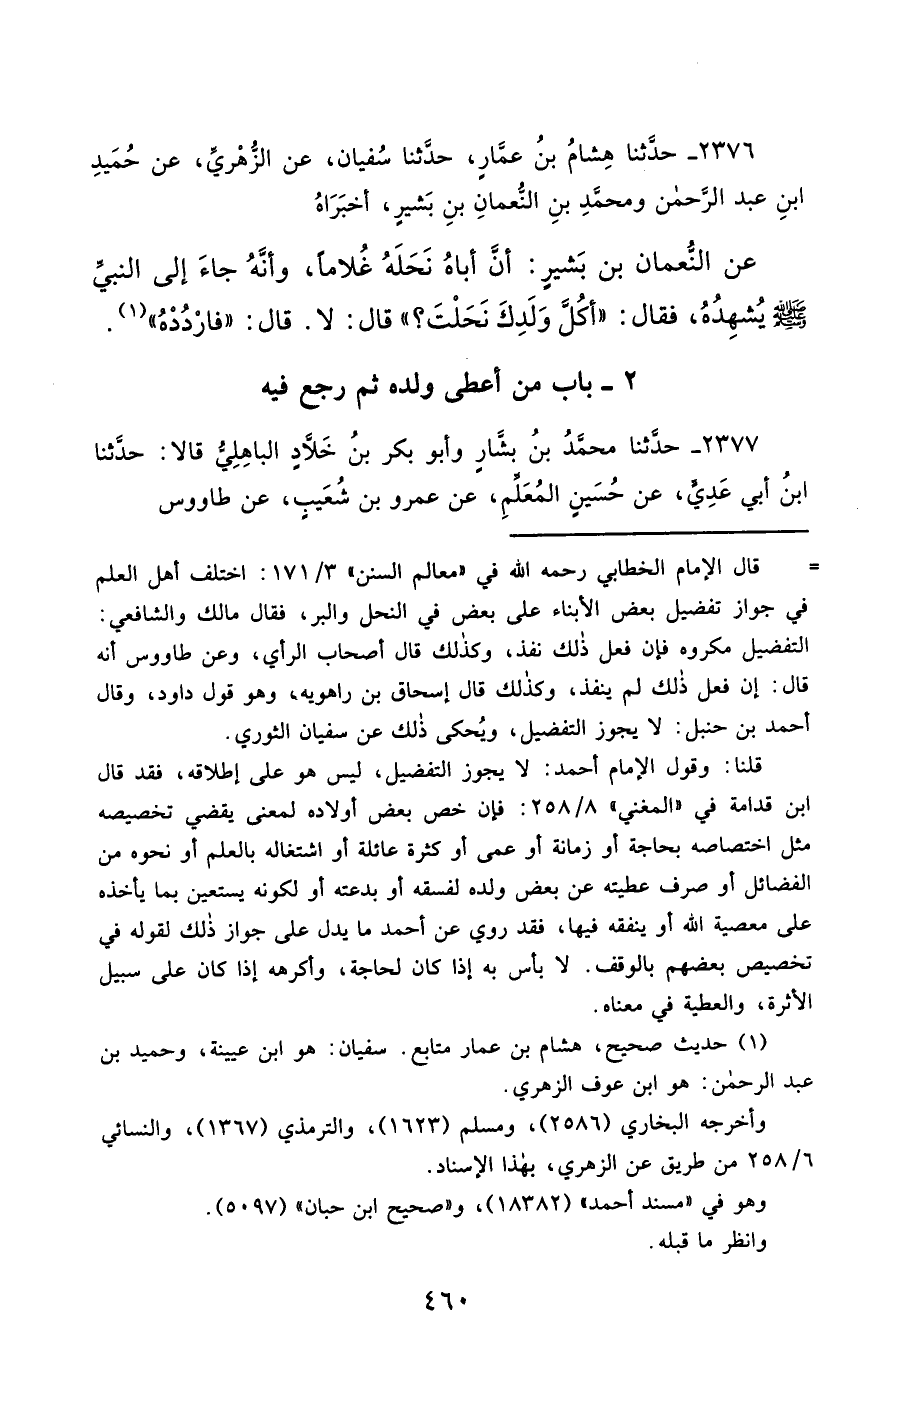 ٢٣٧٦ـ حدَّثنا هِشامُ بنُ عمَّارٍ، حدَّثنا سُفيان، عن الزُّهْريِّ، عن حُمَيدِ
ابنِ عبد الرَّحمٰن ومحمَّدِ بنِ النُّعمانِ بنِ بَشيرٍ، أخبَرَاهُ
عن النُّعمان بن بَشيرٍ: أنَّ أباهُ نَحَلَهُ غُلاماً، وأنَّهُ جاءَ إلى النبيِّ
ﷺ يُشهِدُهُ، فقال: «أكُلَّ وَلَدِكَ نَحَلْتَ؟» قال: لا. قال: «فارْدُدْهُ»(١).
٢ ـ باب من أعطى ولده ثم رجع فيه
٢٣٧٧ـ حدَّثنا محمَّدُ بنُ بشَّارٍ وأبو بكر بنُ خَلَّادٍ الباهِليُّ قالا: حدَّثنا
ابنُ أبي عَديٍّ، عن حُسَينٍ المُعَلِّمِ، عن عمرو بن شُعَيبٍ، عن طاووس
= قال الإمام الخطابي رحمه الله في «معالم السنن» ١٧١/٣: اختلف أهل العلم
في جواز تفضيل بعض الأبناء على بعض في النحل والبر، فقال مالك والشافعي:
التفضيل مكروه فإن فعل ذٰلك نفذ، وكذٰلك قال أصحاب الرأي، وعن طاووس أنه
قال: إن فعل ذٰلك لم ينفذ، وكذٰلك قال إسحاق بن راهويه، وهو قول داود، وقال
أحمد بن حنبل: لا يجوز التفضيل، ويُحكى ذٰلك عن سفيان الثوري.
قلنا: وقول الإمام أحمد: لا يجوز التفضيل، ليس هو على إطلاقه، فقد قال
ابن قدامة في «المغني» ٢٥٨/٨: فإن خص بعض أولاده لمعنى يقضي تخصيصه
مثل اختصاصه بحاجة أو زمانة أو عمى أو كثرة عائلة أو اشتغاله بالعلم أو نحوه من
الفضائل أو صرف عطيته عن بعض ولده لفسقه أو بدعته أو لكونه يستعين بما يأخذه
على معصية الله أو ينفقه فيها، فقد روي عن أحمد ما يدل على جواز ذٰلك لقوله في
تخصيص بعضهم بالوقف. لا بأس به إذا كان لحاجة، وأكرهه إذا كان على سبيل
الأثرة، والعطية في معناه.
(١) حديث صحيح، هشام بن عمار متابع. سفيان: هو ابن عيينة، وحميد بن
عبد الرحمٰن: هو ابن عوف الزهري.
وأخرجه البخاري (٢٥٨٦)، ومسلم (١٦٢٣)، والترمذي (١٣٦٧)، والنسائي
٢٥٨/٦ من طريق عن الزهري، بهٰذا الإسناد.
وهو في «مسند أحمد» (١٨٣٨٢)، و«صحيح ابن حبان» (٥٠٩٧).
وانظر ما قبله.
٤٦٠